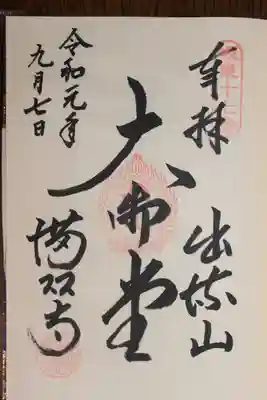 奉拝 出流山
大御堂
満願寺
令和元年
九月七日